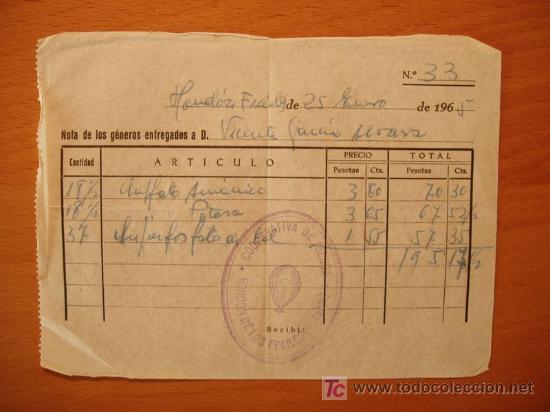 N.º 33
de 25 Enero de 1965
Nota de los géneros entregados a D. Vicente García
Cantidad ARTICULO PRECIO TOTAL
Pesetas Cts. Pesetas Cts.
18 1/2 Sulfato Amónico 3 80 70 30
18 1/2 Potasa 3 65 67 52 1/2
37 Superfosfato de cal 1 55 57 35
195 17 1/2
COOPERATIVA DE
DE LOS FRAILES
Recibí:
TC www.todocoleccion.net